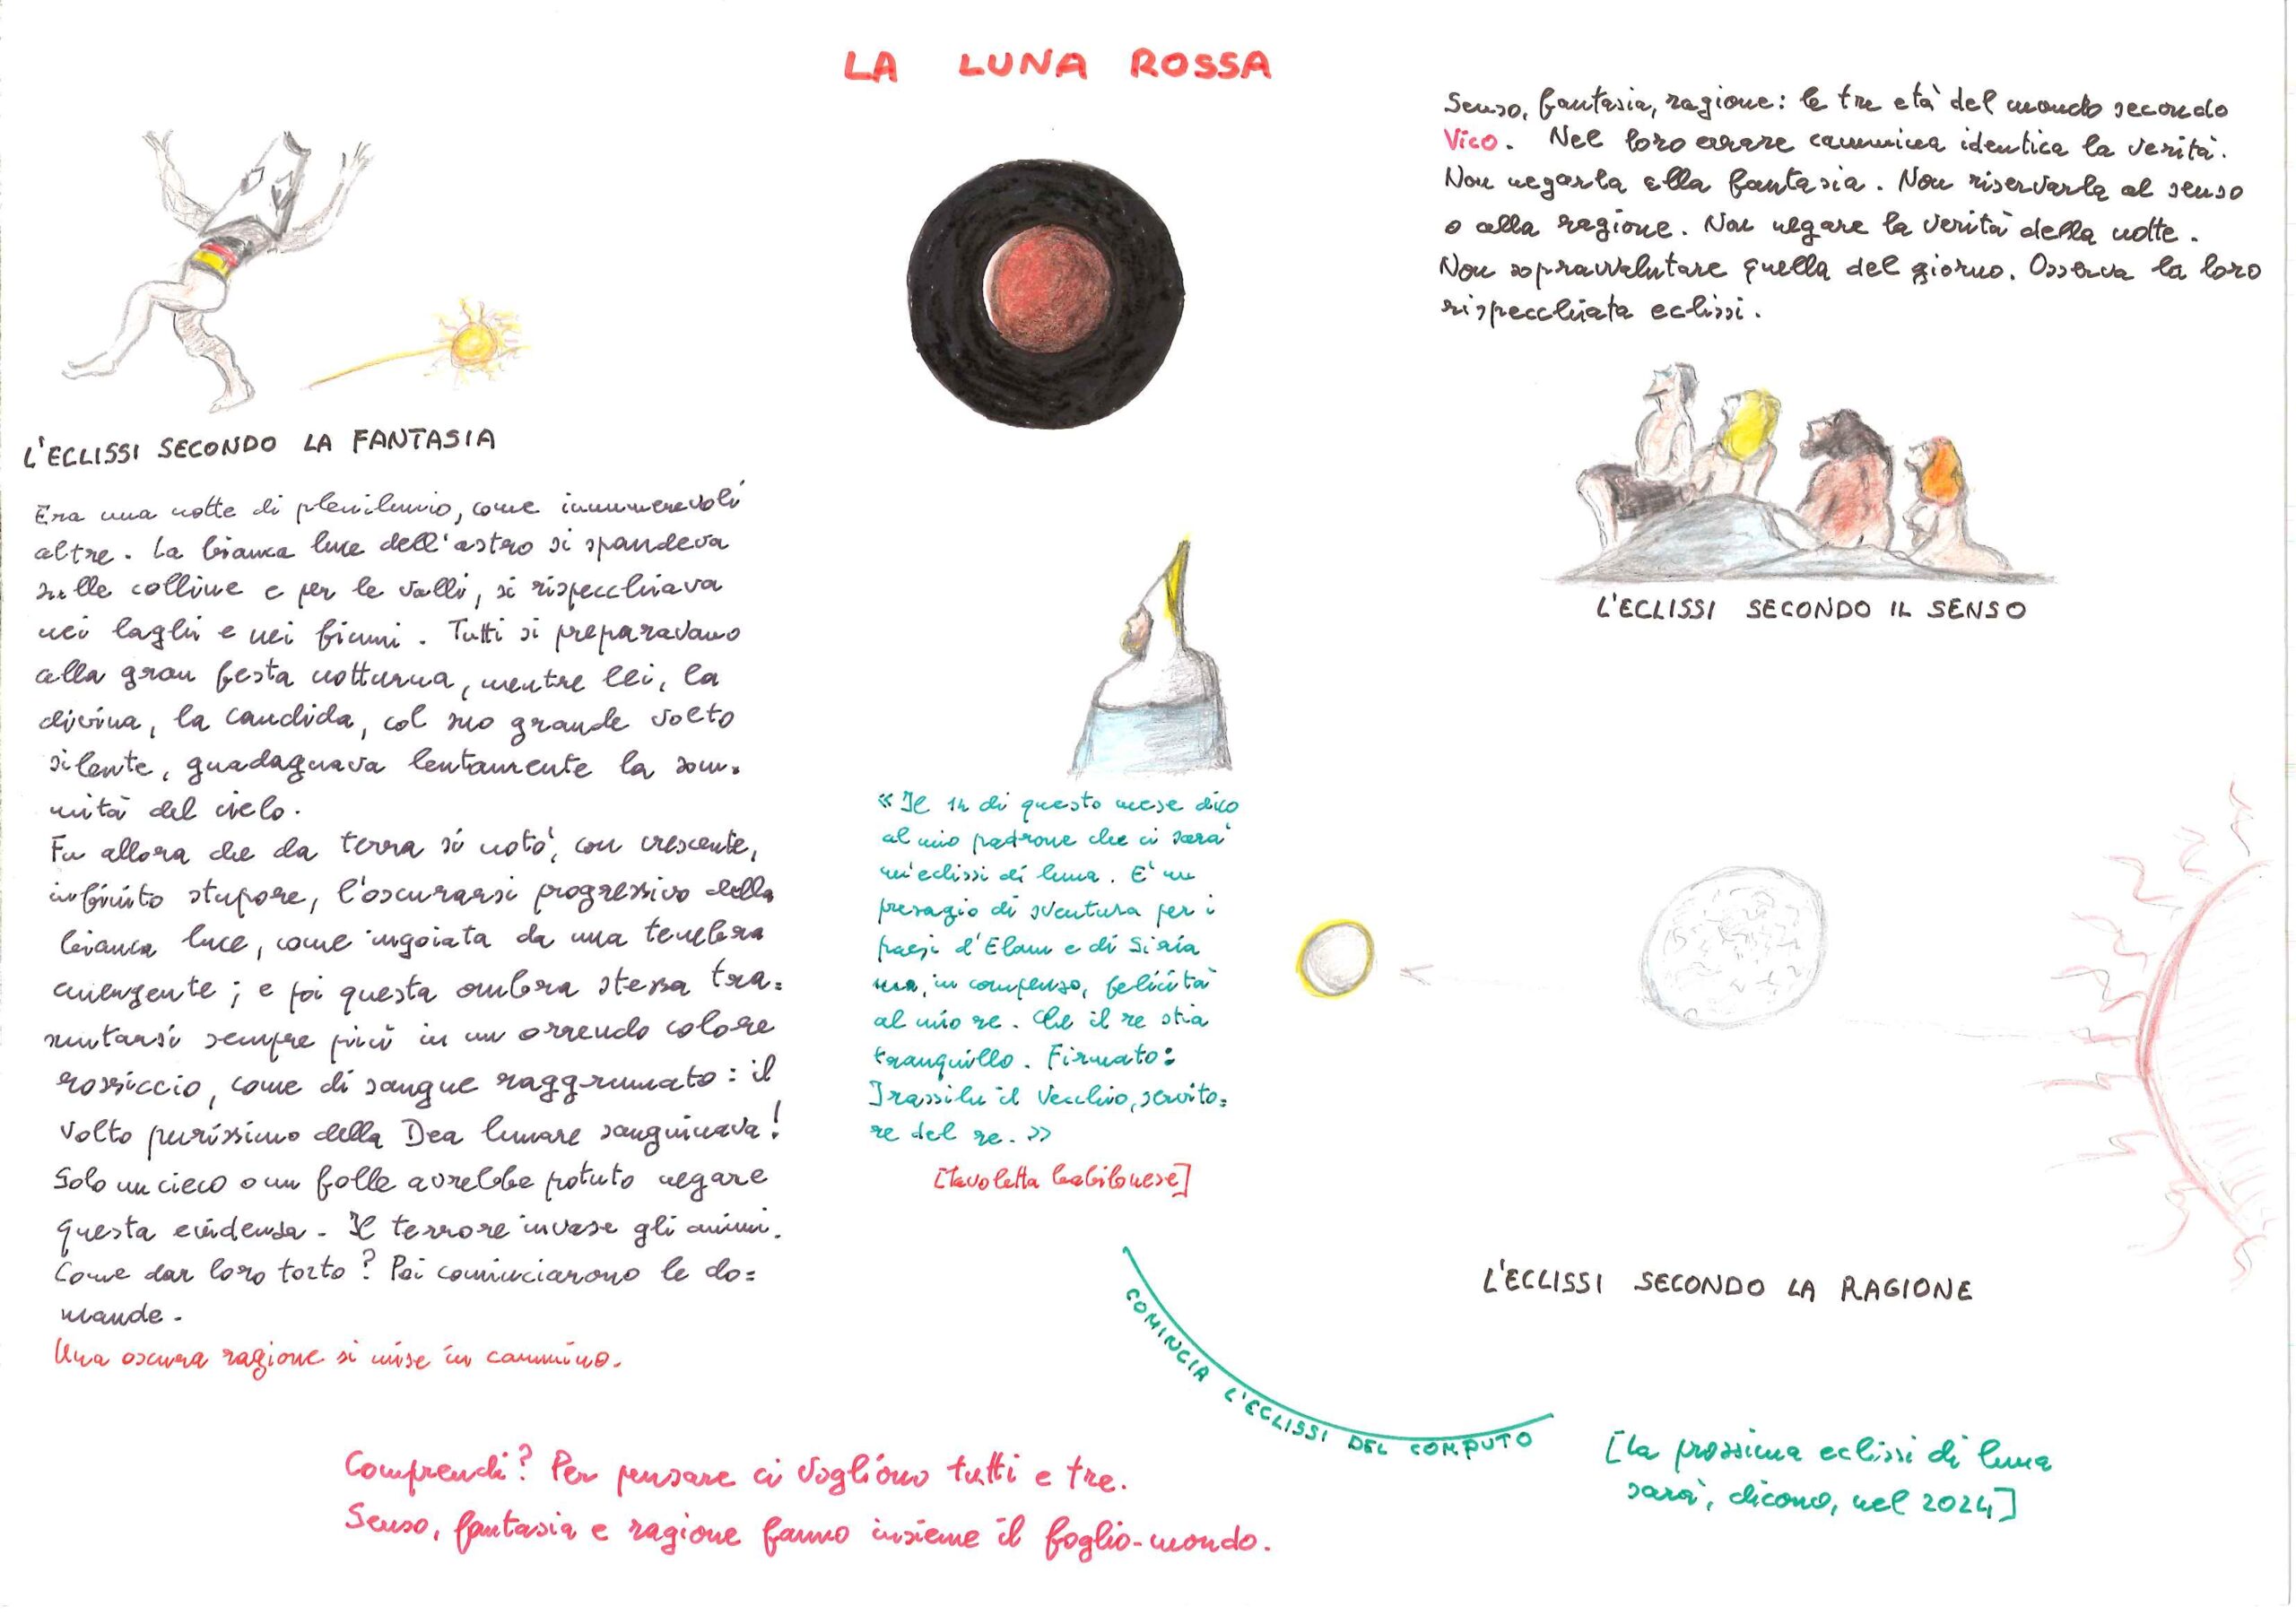 LA LUNA ROSSA
Senso, fantasia, ragione: le tre età del mondo secondo
Vico. Nel loro errare cammina identica la verità.
Non negarla alla fantasia. Non riservarla al senso
o alla ragione. Non negare la verità della notte.
Non sopravvalutare quella del giorno. Osserva la loro
rispecchiata eclissi.
L'ECLISSI SECONDO LA FANTASIA
Era una notte di plenilunio, come innumerevoli
altre. La bianca luce dell'astro si spandeva
sulle colline e per le valli, si rispecchiava
nei laghi e nei fiumi. Tutti si preparavano
alla gran festa notturna, mentre lei, la
divina, la candida, col suo grande volto
silente, guadagnava lentamente la som=
mità del cielo.
Fu allora che da terra si notò, con crescente,
infinito stupore, l'oscurarsi progressivo della
bianca luce, come ingoiata da una tenebra
emergente; e poi questa ombra stessa tra=
smutarsi sempre più in un orrendo colore
rossiccio, come di sangue raggrumato: il
volto purissimo della Dea lunare sanguinava!
Solo un cieco o un folle avrebbe potuto negare
questa evidenza. Il terrore invase gli animi.
Come dar loro torto? Poi cominciarono le do=
mande.
Una oscura ragione si mise in cammino.
L'ECLISSI SECONDO IL SENSO
«Il 14 di questo mese dico
al mio padrone che ci sarà
un'eclissi di luna. E' un
presagio di sventura per i
paesi d'Elam e di Siria
ma, in compenso, felicità
al mio re. Che il re stia
tranquillo. Firmato:
Irassilu il Vecchio, servito=
re del re.»
[Tavoletta babilonese]
L'ECLISSI SECONDO LA RAGIONE
COMINCIA L'ECLISSI DEL COMPUTO
[La prossima eclissi di luna
sarà, dicono, nel 2024]
Comprendi? Per pensare ci vogliono tutti e tre.
Senso, fantasia e ragione fanno insieme il foglio-mondo.